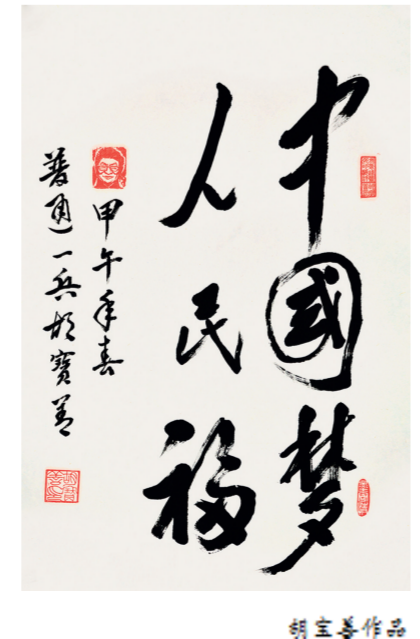 中國梦
人民福
甲午年春
普通一兵胡寳善
胡宝善作品